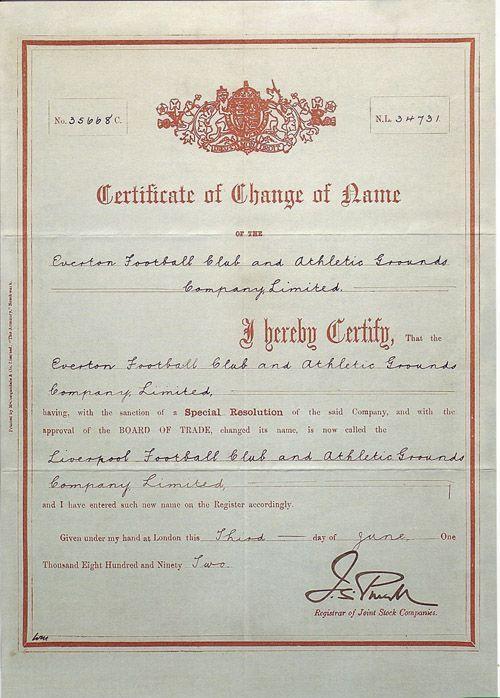 No. 35668 C.
N.L. 34731
Certificate of Change of Name
OF THE
Everton Football Club and Athletic Grounds
Company, Limited.
I hereby Certify, That the
Everton Football Club and Athletic Grounds
Company, Limited,
having, with the sanction of a Special Resolution of the said Company, and with the
approval of the BOARD OF TRADE, changed its name, is now called the
Liverpool Football Club and Athletic Grounds
Company, Limited,
and I have entered such new name on the Register accordingly.
Given under my hand at London this Third day of June One
Thousand Eight Hundred and Ninety Two.
Registrar of Joint Stock Companies.